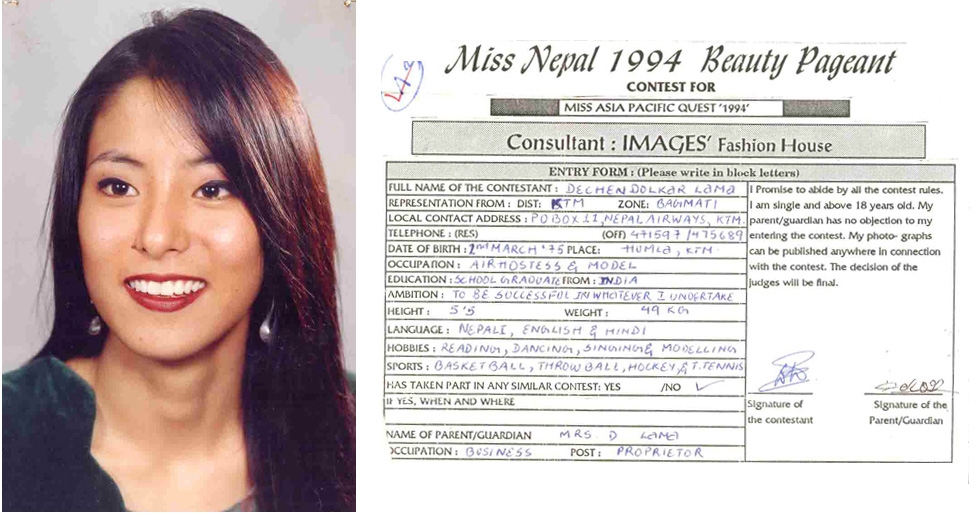 Miss Nepal 1994 Beauty Pageant
CONTEST FOR
MISS ASIA PACIFIC QUEST '1994'
Consultant : IMAGES' Fashion House
ENTRY FORM : (Please write in block letters)
FULL NAME OF THE CONTESTANT : DECHEN DOLKAR LAMA
REPRESENTATION FROM : DIST: KTM ZONE: BAGMATI
LOCAL CONTACT ADDRESS : P O BOX 11, NEPAL AIRWAYS, KTM.
TELEPHONE : (RES) (OFF) 471597 / 475689
DATE OF BIRTH : 2nd MARCH '75 PLACE: HUMLA, KTM.
OCCUPATION : AIRHOSTESS & MODEL
EDUCATION : SCHOOL GRADUATE FROM : INDIA
AMBITION : TO BE SUCCESSFUL IN WHATEVER I UNDERTAKE
HEIGHT : 5'5 WEIGHT : 49 KG
LANGUAGE : NEPALI, ENGLISH & HINDI
HOBBIES : READING, DANCING, SINGING & MODELLING
SPORTS : BASKETBALL, THROW BALL, HOCKEY, & T. TENNIS
HAS TAKEN PART IN ANY SIMILAR CONTEST: YES /NO ✓
IF YES, WHEN AND WHERE
NAME OF PARENT/GUARDIAN MRS. D LAMA
OCCUPATION : BUSINESS POST : PROPRIETOR
I Promise to abide by all the contest rules.
I am single and above 18 years old. My
parent/guardian has no objection to my
entering the contest. My photo- graphs
can be published anywhere in connection
with the contest. The decision of the
judges will be final.
Signature of
the contestant
Signature of the
Parent/Guardian